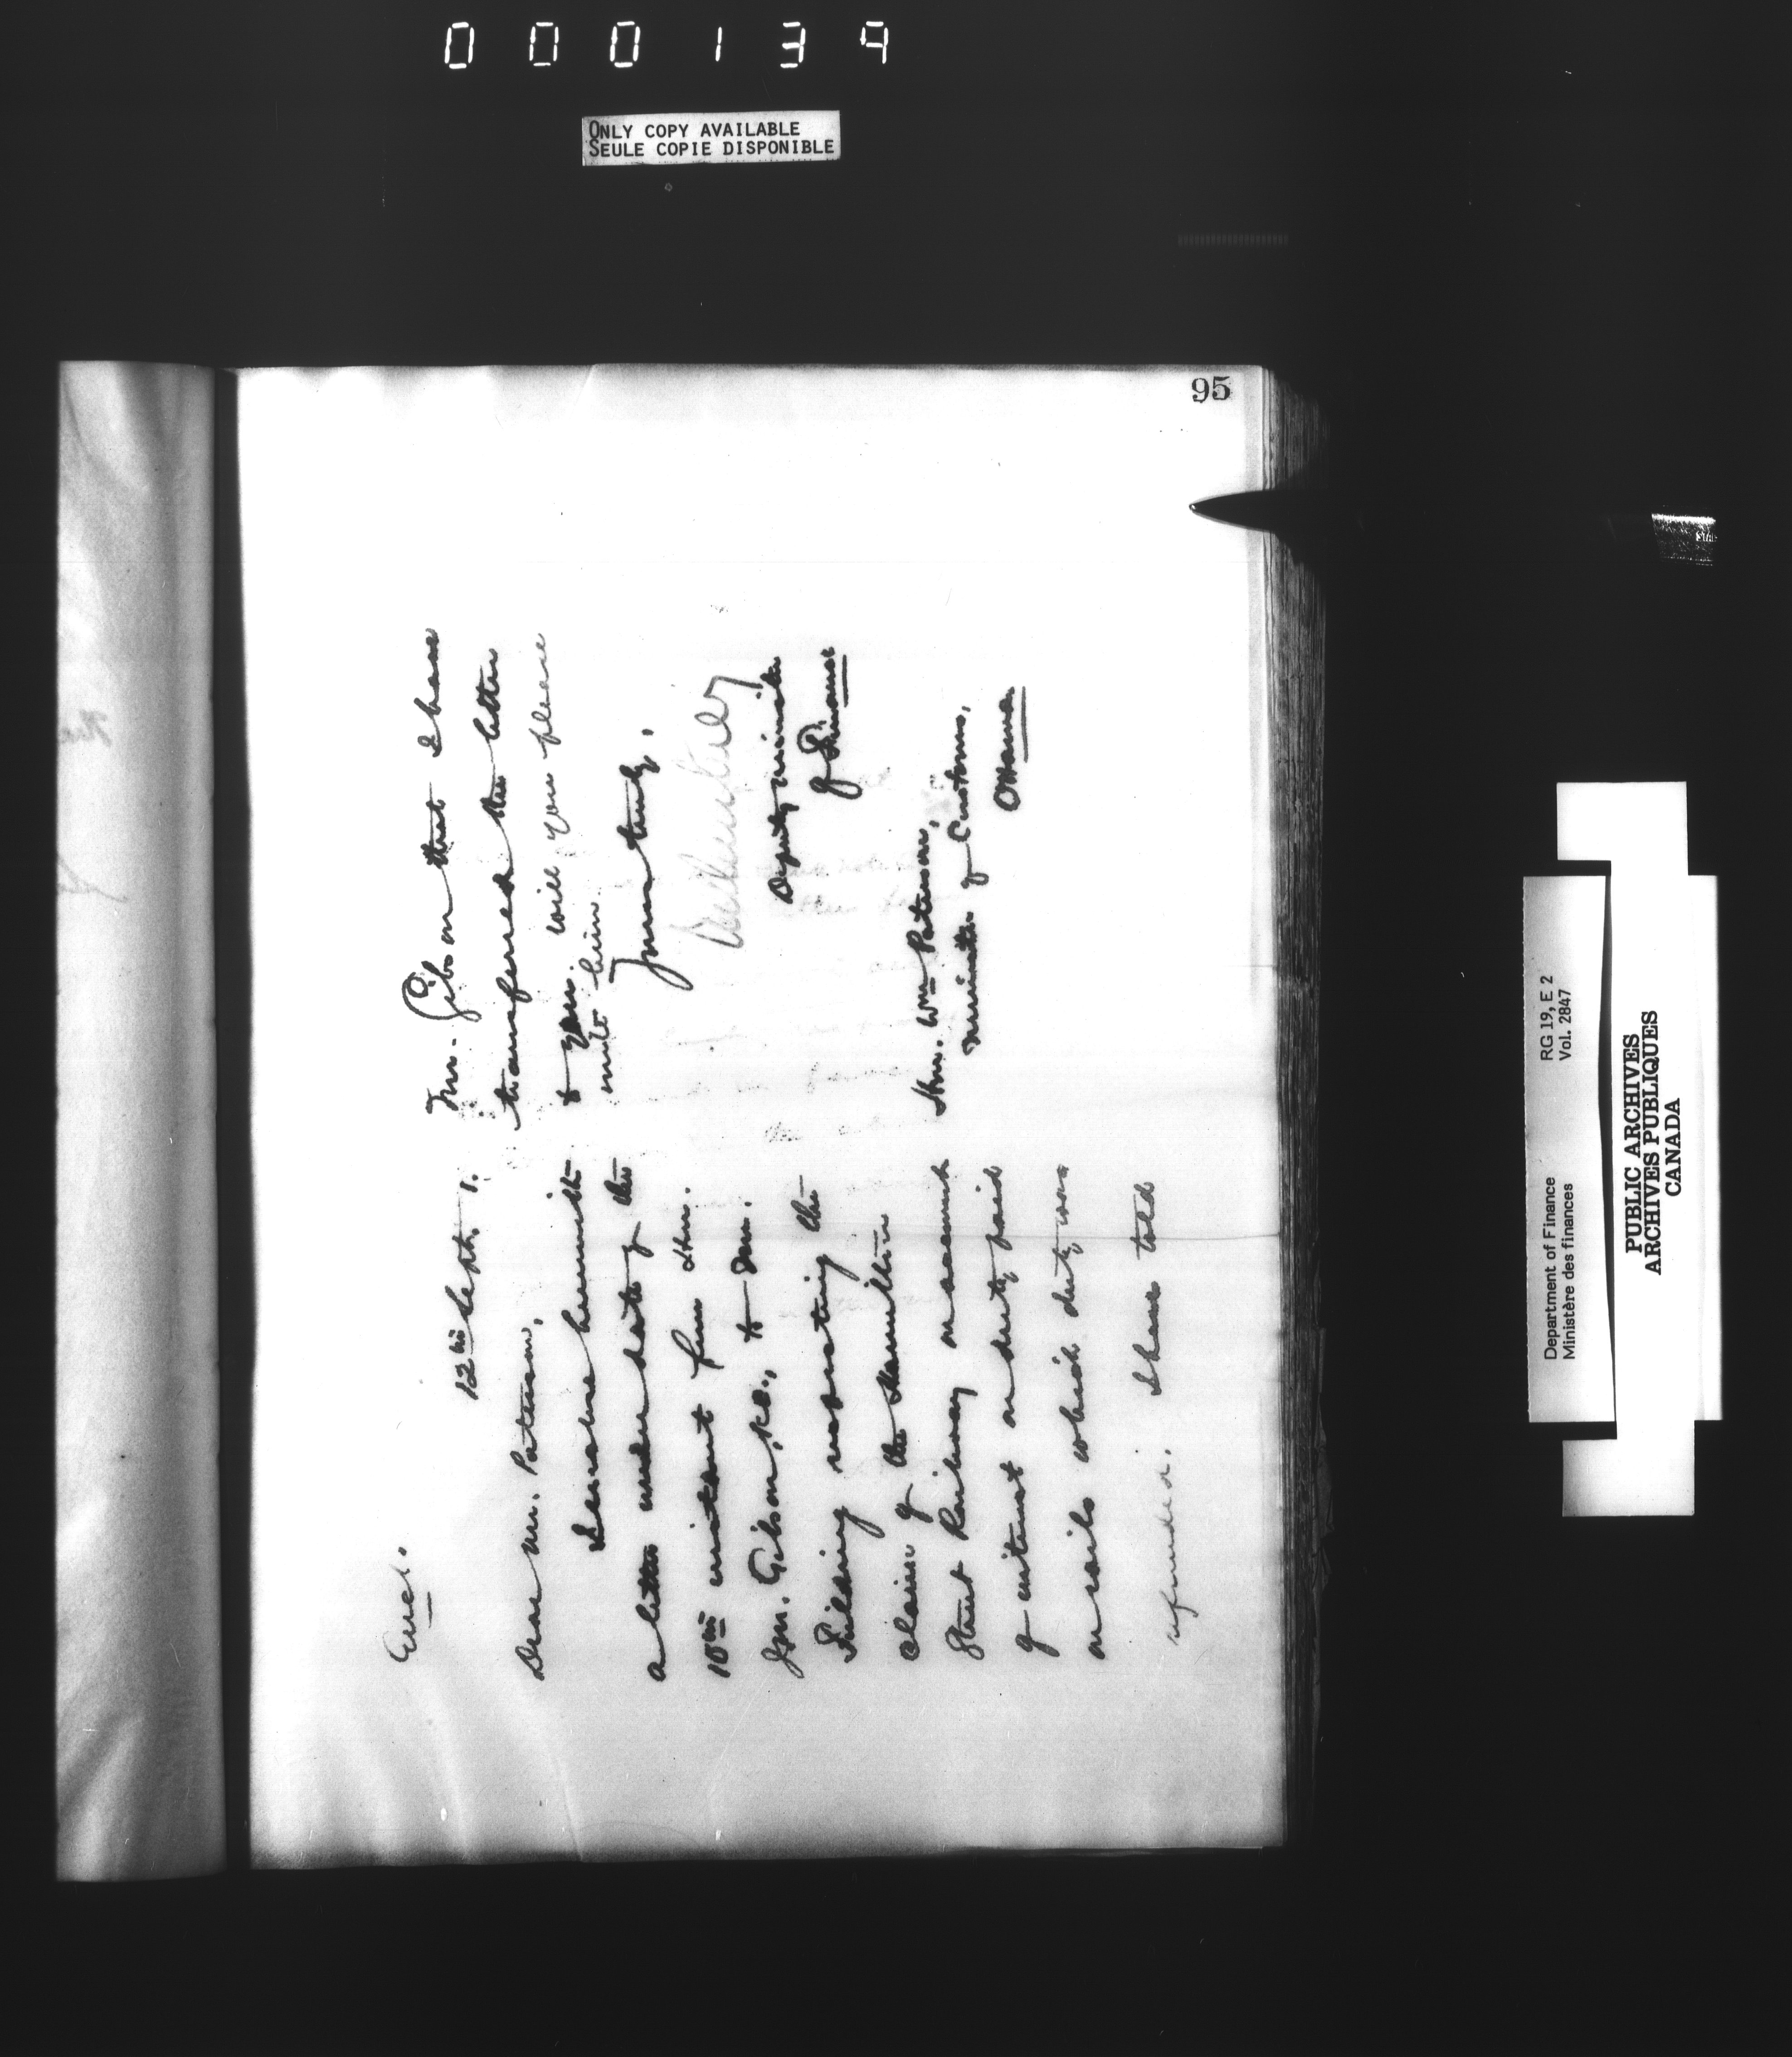 000139
ONLY COPY AVAILABLE
SEULE COPIE DISPONIBLE
95
Encl.
12th Sept. 1.
Dear Mr. Paterson,
I enclose herewith
a letter under date of the
10th instant from Hon.
Jn. Gibson, KC., to Hon.
Fielding respecting the
claim of the Hamilton
Street Railway on account
of interest on duty paid
on rails which duty was
refunded. I have told
Mr. Gibson that I have
transferred the letter
to you. Will you please
write him.
Yours truly,
Deputy Minister
of Finance
Hon. Wm Paterson,
Minister of Customs,
Ottawa
Department of Finance RG 19, E 2
Ministère des finances Vol. 2847
PUBLIC ARCHIVES
ARCHIVES PUBLIQUES
CANADA